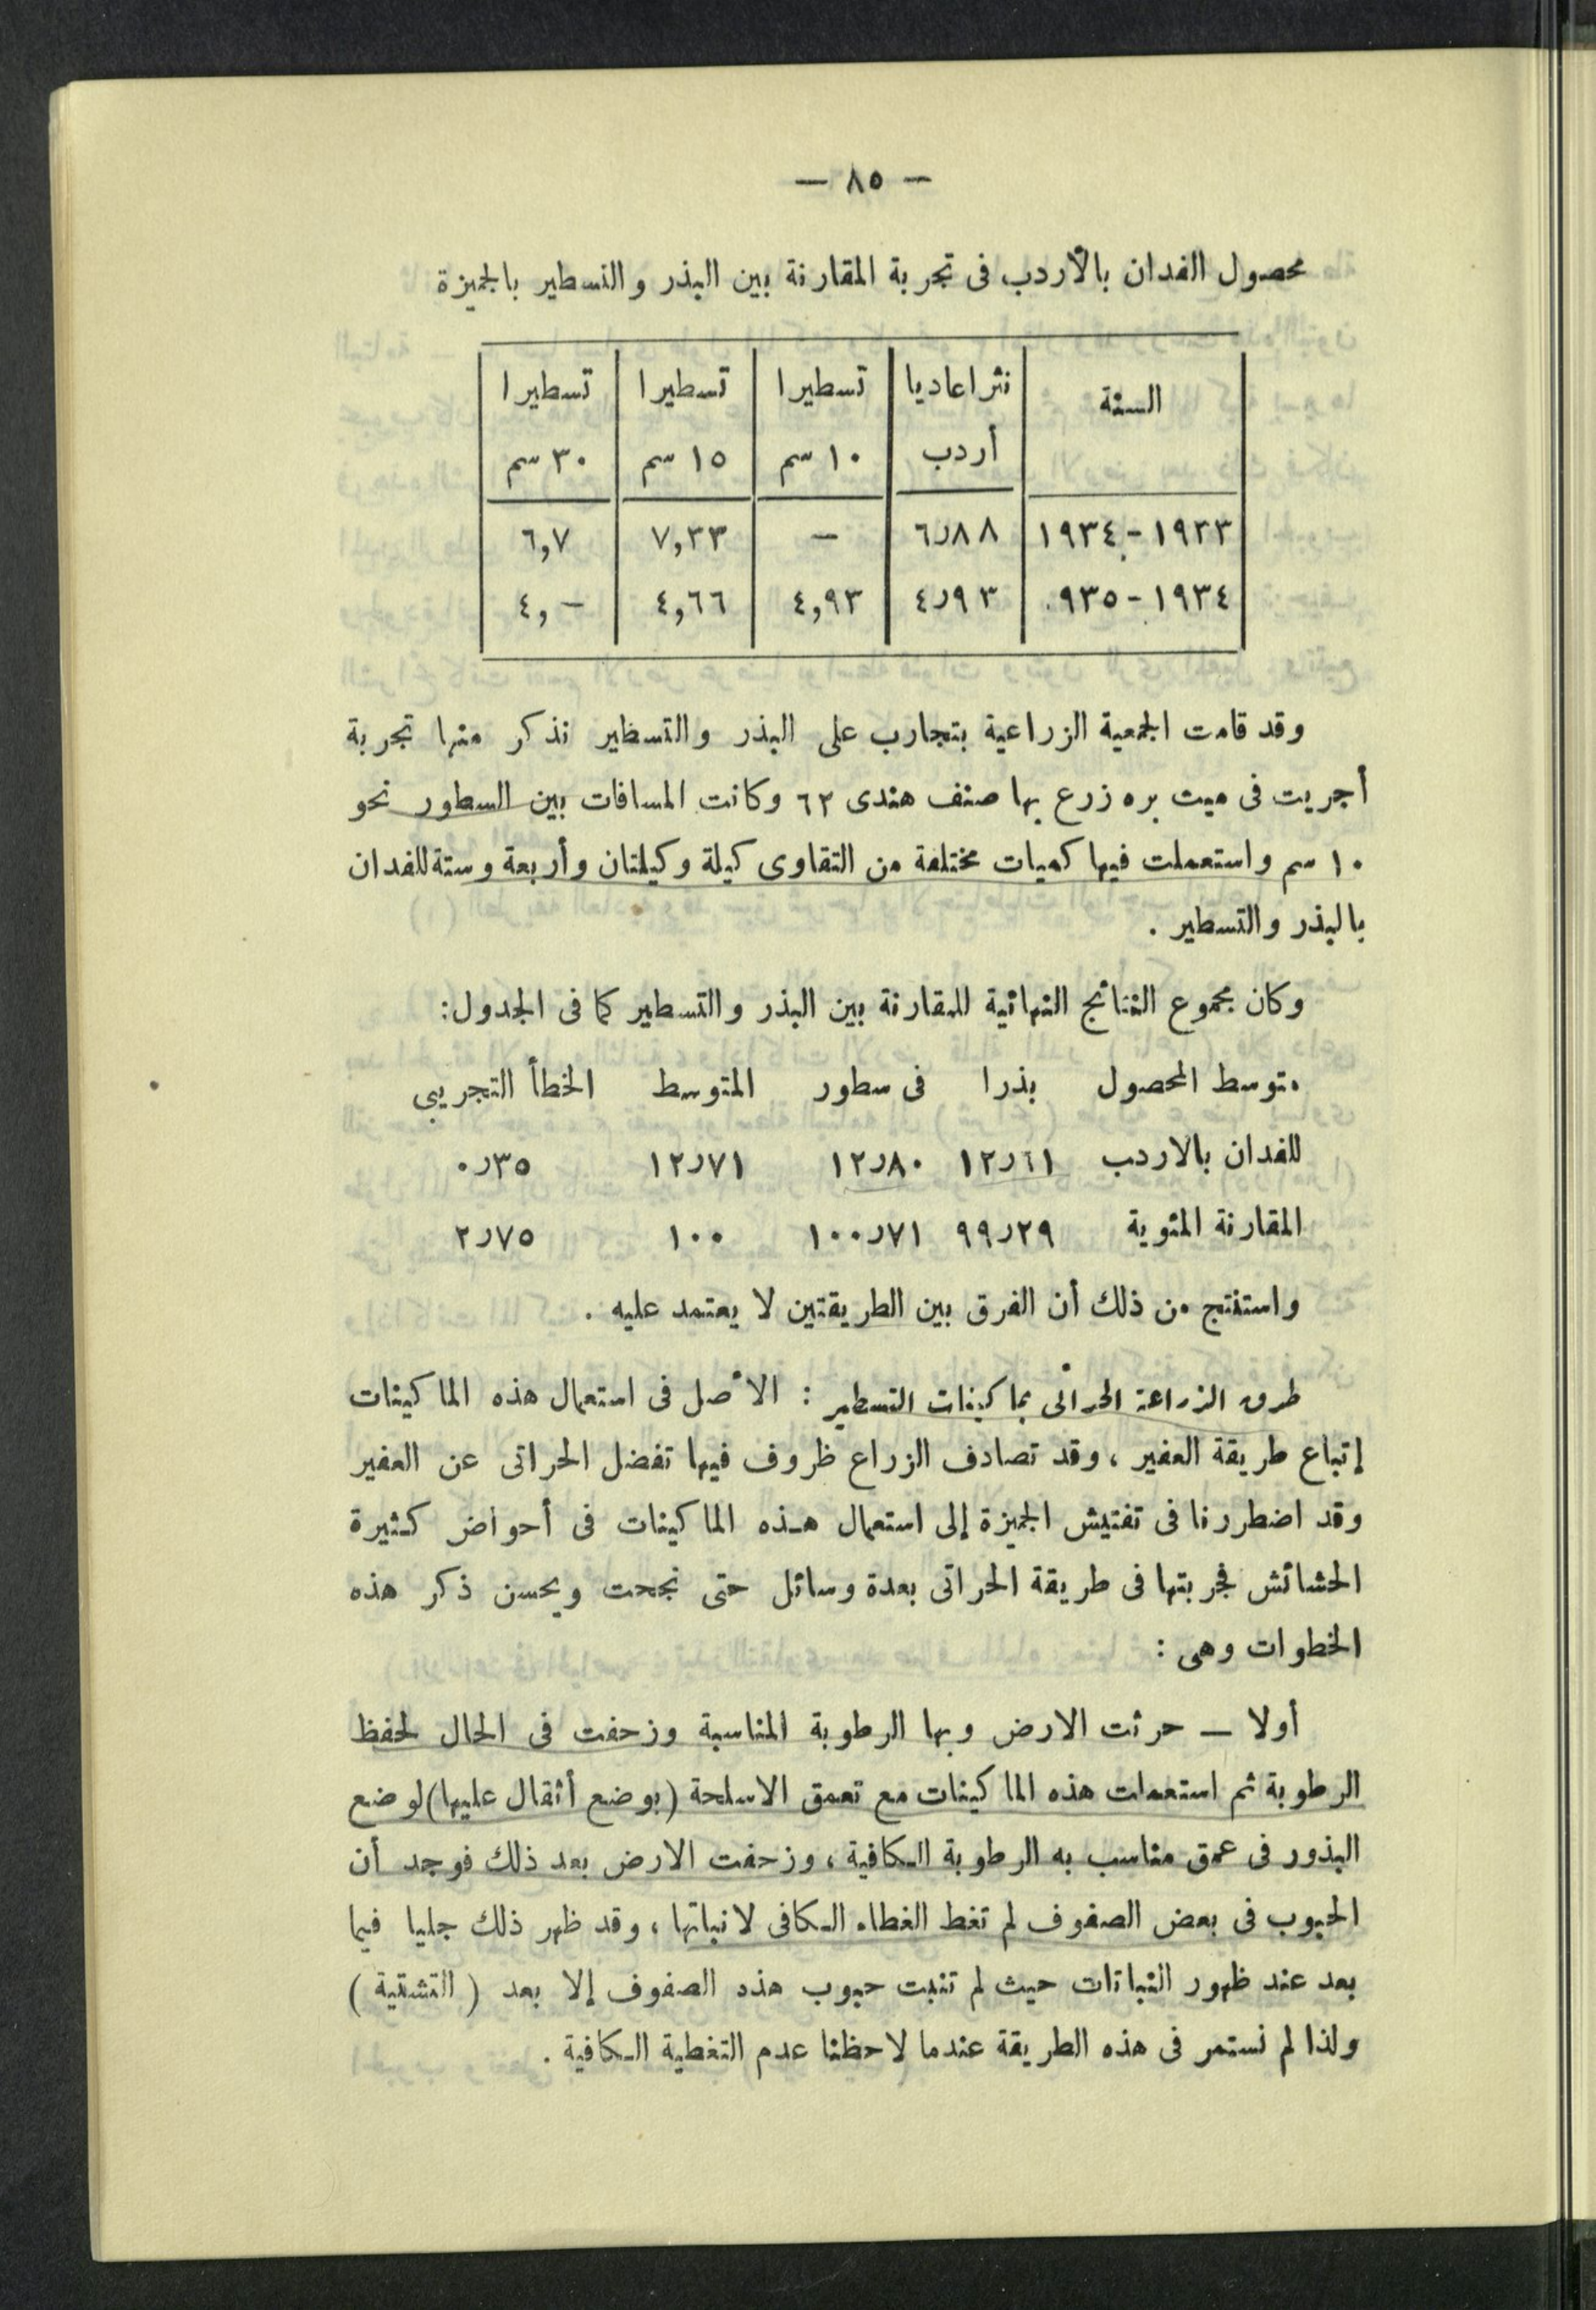 — ٨٥ —
محصول الفدان بالأردب فى تجربة المقارنة بين البذر والتسطير بالجميزة
السنة | نثرا عاديا | تسطيرا | تسطيرا | تسطيرا
أردب | ١٠ سم | ١٥ سم | ٣٠ سم
١٩٣٣ - ١٩٣٤ | ٦٫٨٨ | — | ٧,٣٣ | ٦,٧
١٩٣٤ - ٩٣٥ | ٤٫٩٣ | ٤,٩٣ | ٤,٦٦ | ٤,—
وقد قامت الجمعية الزراعية بتجارب على البذر والتسطير نذكر منها تجربة
أجريت فى ميت بره زرع بها صنف هندى ٦٢ وكانت المسافات بين السطور نحو
١٠ سم واستعملت فيها كميات مختلفة من التقاوى كيلة وكيلتان وأربعة وستة للفدان
بالبذر والتسطير .
وكان مجموع النتائج النهائية للمقارنة بين البذر والتسطير كما فى الجدول:
متوسط المحصول بذرا فى سطور المتوسط الخطأ التجريبى
للفدان بالاردب ١٢٫٦١ ١٢٫٨٠ ١٢٫٧١ ٠٫٣٥
المقارنة المئوية ٩٩٫٢٩ ١٠٠٫٧١ ١٠٠ ٢٫٧٥
واستنتج من ذلك أن الفرق بين الطريقتين لا يعتمد عليه .
طرق الزراعة الحراثى بماكينات التسطير : الأصل فى استعمال هذه الماكينات
إتباع طريقة العفير ، وقد تصادف الزراع ظروف فيها تفضل الحراتى عن العفير
وقد اضطررنا فى تفتيش الجميزة إلى استعمال هذه الماكينات فى أحواض كثيرة
الحشائش فجربتها فى طريقة الحراتى بعدة وسائل حتى نجحت ويحسن ذكر هذه
الخطوات وهى :
أولا — حرثت الارض وبها الرطوبة المناسبة وزحفت فى الحال لحفظ
الرطوبة ثم استعملت هذه الماكينات مع تعمق الاسلحة (بوضع أثقال عليها) لوضع
البذور فى عمق مناسب به الرطوبة الكافية ، وزحفت الارض بعد ذلك فوجد أن
الحبوب فى بعض الصفوف لم تغط الغطاء الكافى لانباتها ، وقد ظهر ذلك جليا فيما
بعد عند ظهور النباتات حيث لم تنبت حبوب هذه الصفوف إلا بعد ( التشتية )
ولذا لم نستمر فى هذه الطريقة عندما لاحظنا عدم التغطية الكافية .